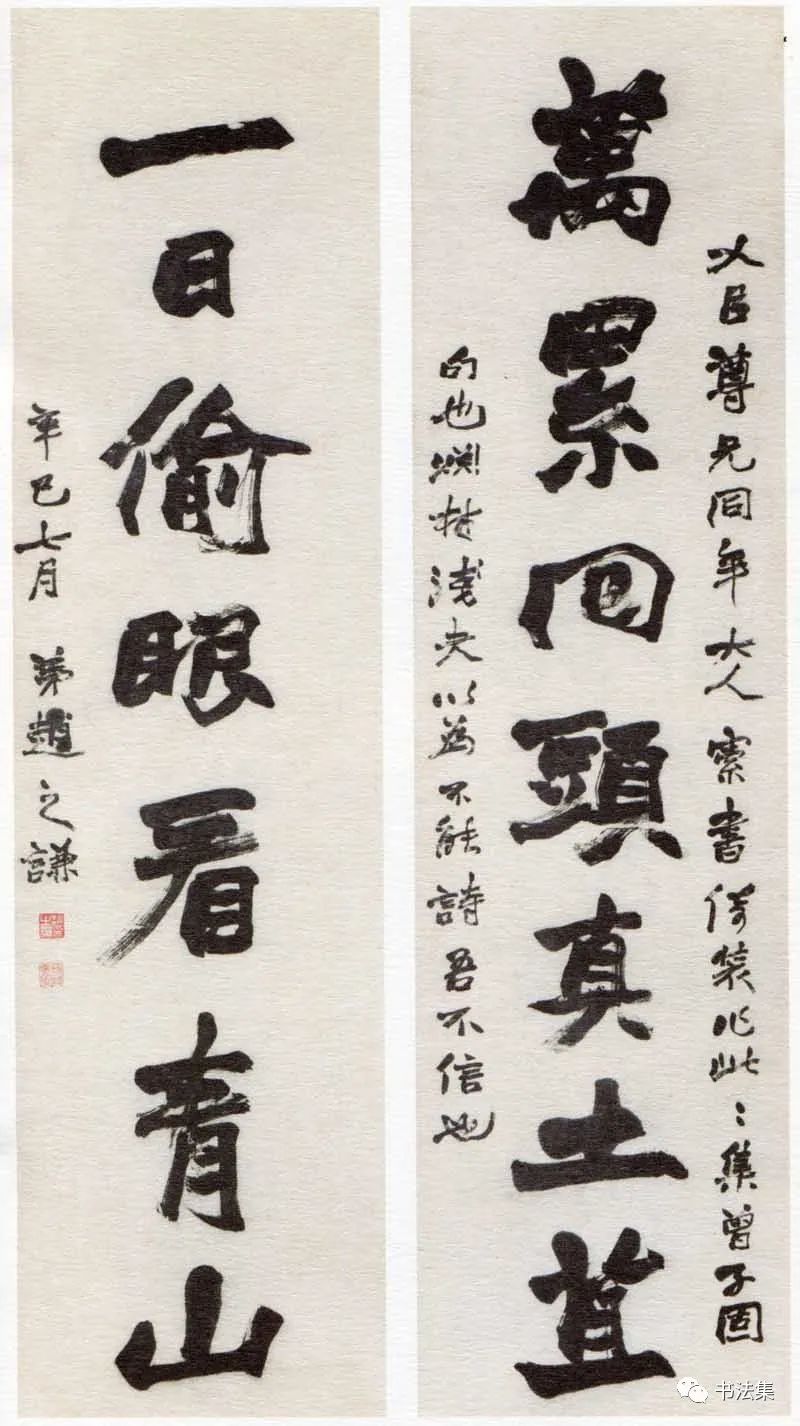 萬累回頭真土苴
尊兄同年大人索書倚裝作此：集曾子固
句也 淺夫以為不能詩吾不信也
一日偷眼看青山
辛巳七月 弟趙之謙
书法集